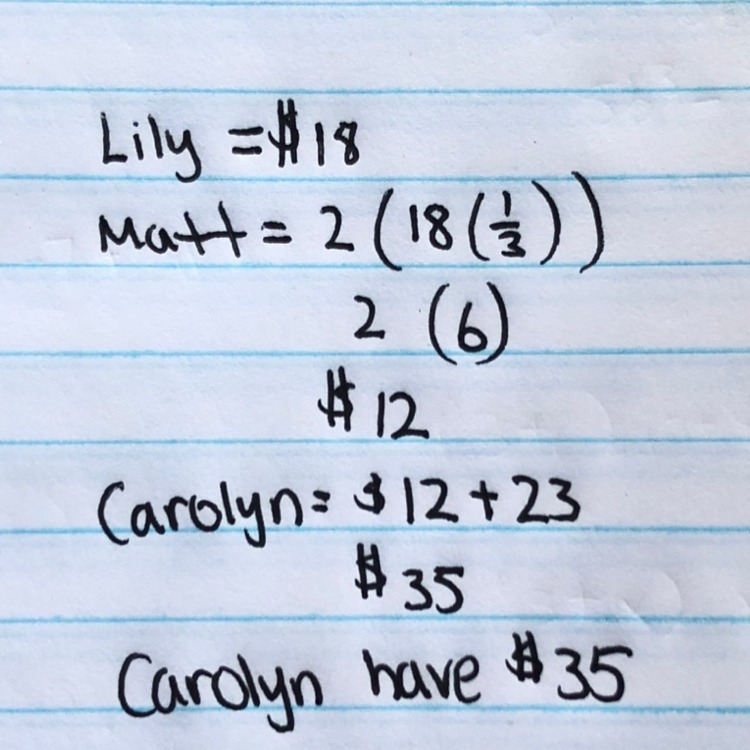 Lily = $18
Matt = 2 (18 (1/3))
2 (6)
$ 12
Carolyn = $12 + 23
$ 35
Carolyn have $35